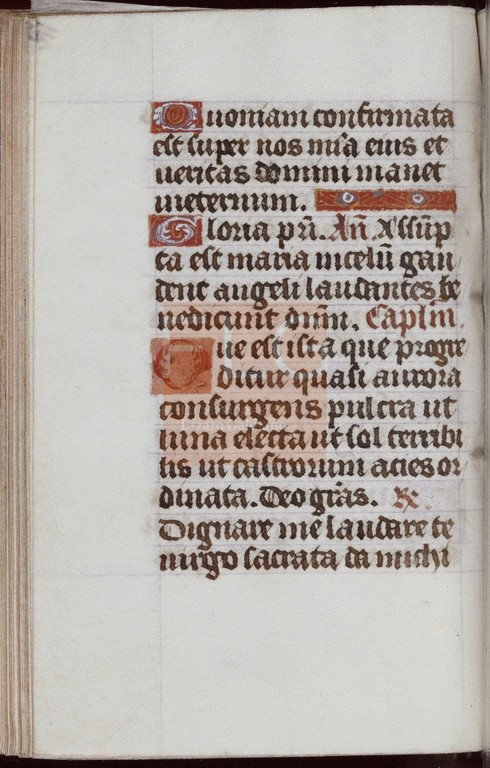 Quoniam confirmata
est super nos mi̅a eius et
ueritas domini manet
ineternum.
Gloria pr̅i. An̅. Assu̅p
ta est maria incelu̅ gau
dent angeli laudantes be
nedicunt dn̅m. Caplm̅.
Que est ista que progre
ditur quasi aurora
consurgens pulcra ut
luna electa ut sol terribi
lis ut castrorum acies or
dinata. Deo gr̅as. R.
Dignare me laudare te
uirgo sacrata da michi